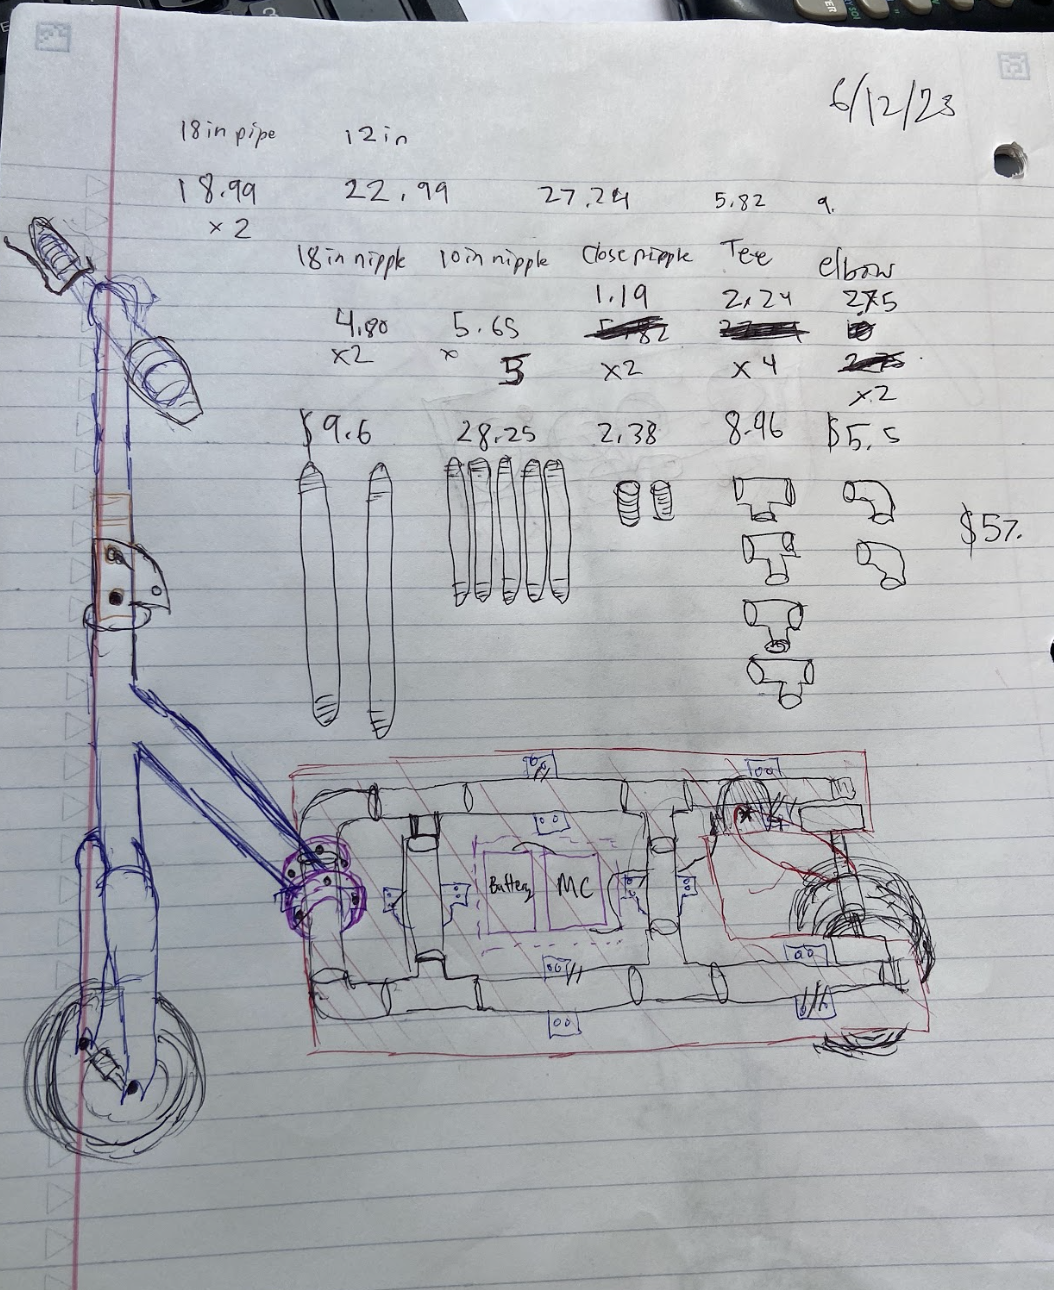 6/12/23
18in pipe 12in
18.99 22.99 27.24 5.82 9.
x2
18in nipple 10in nipple Close nipple Tee elbow
1.19 2.24 2.75
4.80 5.65
x2 x 5 x2 x4
x2
$9.6 28.25 2.38 8.96 $5.5
$57.
Battery MC